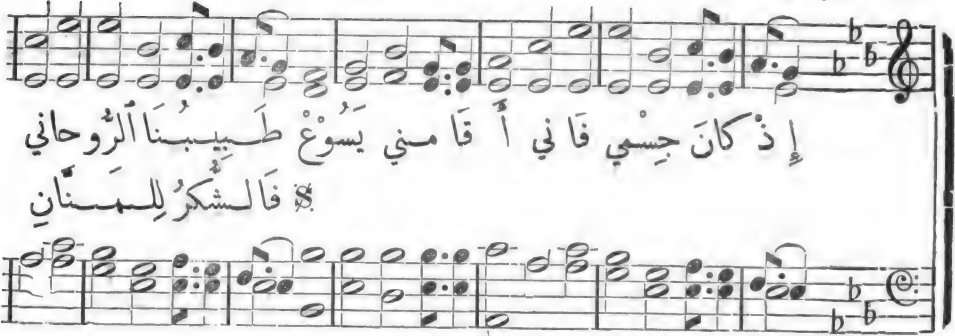 إِذْ كانَ جِسْمي فَا ني أَ قَا مـني يَسُوْعْ طَـبيـبُـنَا ٱلرُّوحاني
فَا لـشُّكرُ لِلـمَـنَّانِ